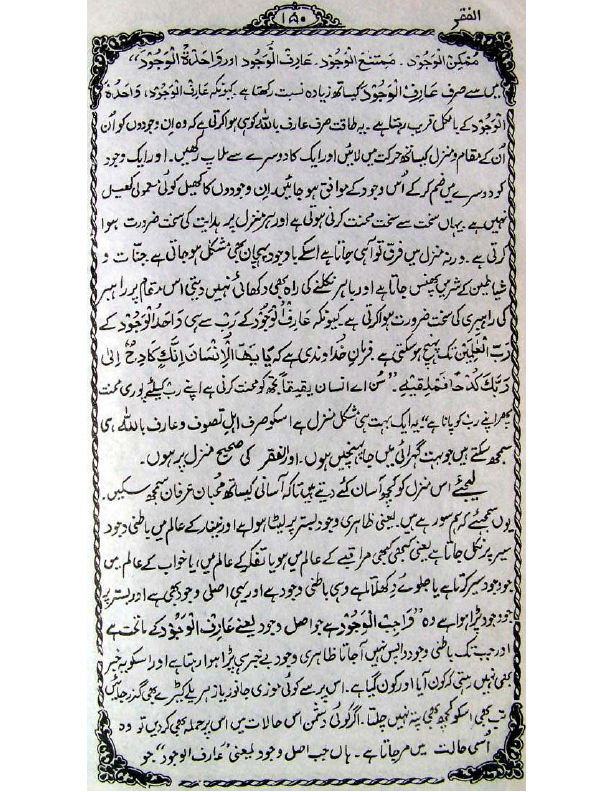 الفقر
۱۵۰
مُمکِنُ الْوَجُوْد۔ مُمتَنِعُ الْوَجُوْد۔ عَارِفُ الْوَجُوْد اور وَاحِدَۃُ الْوَجُوْد“
میں سے صرف عَارِفُ الْوَجُوْد کیساتھ زیادہ نسبت رکھتا ہے کیونکہ عَارِفُ الْوَجُوْد، وَاحِدَۃُ
الْوَجُوْد کے بالکل قریب رہتا ہے۔ یہ طاقت صرف عارف باللہ کو ہی ہوا کرتی ہے کہ وہ ان وجودوں کو اُن
اُن کے مقام و منزل کیساتھ حرکت میں لائیں اور ایک کا دوسرے سے ملاپ رکھیں۔ اور ایک وجود
کو دوسرے میں ضم کر کے اُس وجود کے موافق ہو جائیں۔ اِن وجودوں کا کھیل کوئی معمولی کھیل
نہیں ہے یہاں سخت سے سخت محنت کرنی ہوتی ہے اور ہر منزل پر ہدایت کی سخت ضرورت ہوا
کرتی ہے۔ ورنہ منزل میں فرق تو آ ہی جاتا ہے اسکے باوجود پہچان بھی مشکل ہو جاتی ہے جنّات و
شیاطین کے شر میں پھنس جاتا ہے اور باہر نکلنے کی راہ بھی دکھائی نہیں دیتی اس مقام پر راہبر
کی راہبری کی سخت ضرورت ہوا کرتی ہے۔ کیونکہ عَارِفُ الْوَجُوْد کے رَب سے ہی وَاحِدُ الْوَجُوْد کے
رَبُّ الْعٰلَمِیْن تک پہنچ ہو سکتی ہے۔ فرمانِ خُداوندی ہے کہ یٰٓاَیُّھَا الْاِنْسَانُ اِنَّکَ کَادِحٌ اِلٰی
رَبِّکَ کَدْحًا فَمُلٰقِیْهِ۔ ”سُن اے انسان یقیناً تجھ کو محنت کرنی ہے اپنے رب کیلئے پوری محنت
پھر اپنے رب کو پانا ہے“۔ یہ ایک بہت ہی مشکل منزل ہے اسکو صرف اہلِ تصوف و عارف باللہ ہی
سمجھ سکتے ہیں جو بہت گہرائی میں جا پہنچیں ہوں۔ اور الفقر کی صحیح منزل پر ہوں۔
لیجئے اس منزل کو کچھ آسان کئے دیتے ہیں تاکہ آسانی کیساتھ محبان عرفان سمجھ سکیں۔
یوں سمجھئے کہ ہم سو رہے ہیں۔ یعنی ظاہری وجود بستر پر لیٹا ہوا ہے اور نیند کے عالم میں باطنی وجود
سیر پر نکل جاتا ہے یعنی کبھی کبھی مراقبے کے عالم میں ہو یا تفکر کے عالم میں، یا خواب کے عالم میں
جو وجود سیر کرتا ہے یا جلوے دکھلاتا ہے وہی باطنی وجود ہے اور یہی اصلی وجود بھی ہے اور بستر پر
جو وجود پڑا ہوا ہے وہ ”وَاجِبُ الْوَجُوْد“ ہے جو اصل وجود یعنے عَارِفُ الْوَجُوْد کے ماتحت ہے
اور جب تک باطنی وجود واپس نہیں آجاتا ظاہری وجود بے خبری پڑا ہوا رہتا ہے اور اسکو یہ خبر
بھی نہیں رہتی کہ کون آیا اور کون گیا ہے۔ اس پر سے کوئی موزی جانور یا زہریلے کیڑے بھی گذر جائے
تب بھی اسکو کچھ بھی پتہ نہیں چلتا۔ اگر کوئی دشمن اس حالات میں اس پر حملہ بھی کر دیں تو وہ
اُسی حالت میں مر جاتا ہے۔ ہاں جب اصل وجود یعنی ”عارف الوجود“ جو